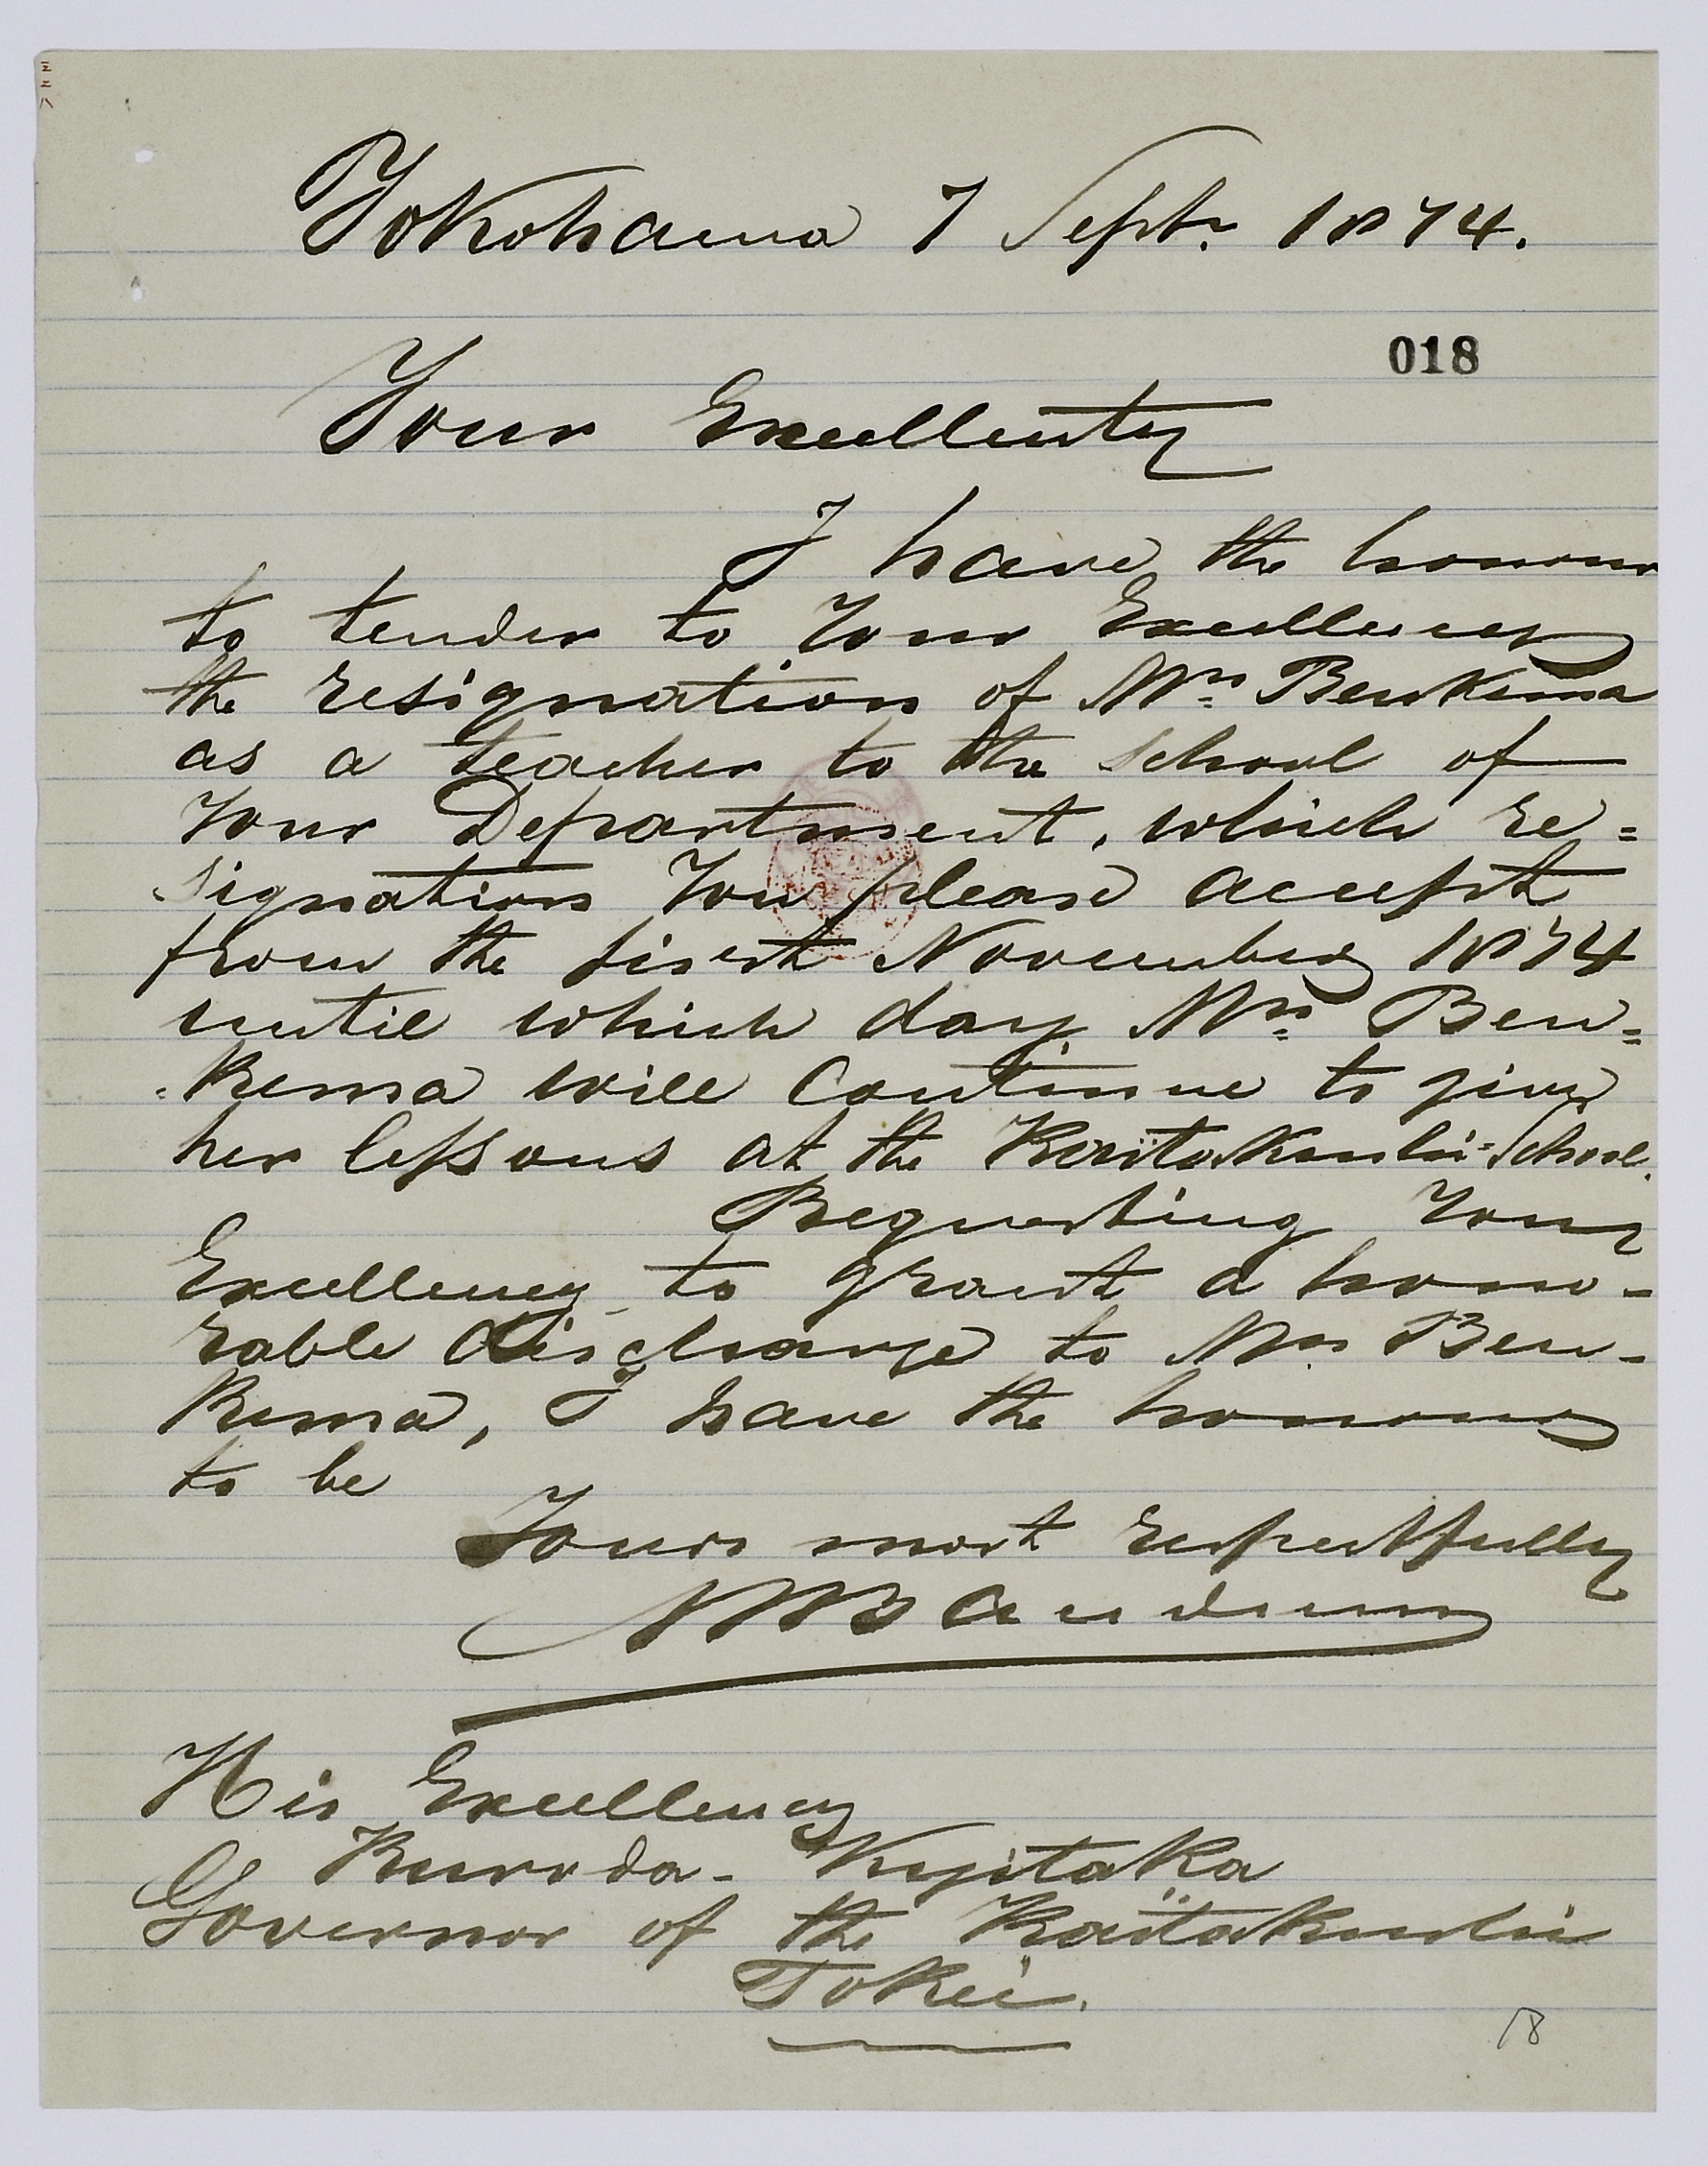 Yokohama 7 Septr. 1874.
018
Your Excellenty
I have the honour
to tender to Your Excellency
the resignation of Mrs. Beukema
as a teacher to the School of
Your Department, which re=
signation You please accept
from the first November 1874
until which day Mrs. Beu=
=kema will Continue to give
her lessons at the Kaïtakushi-School.
Requesting Your
Excellency to grant a hono-
rable discharge to Mrs Beu-
kema, I have the honour
to be
Yours most respectfully
His Excellency
Kuroda- Kyitaka
Governor of the Kaïtakushi
Tokei.
18